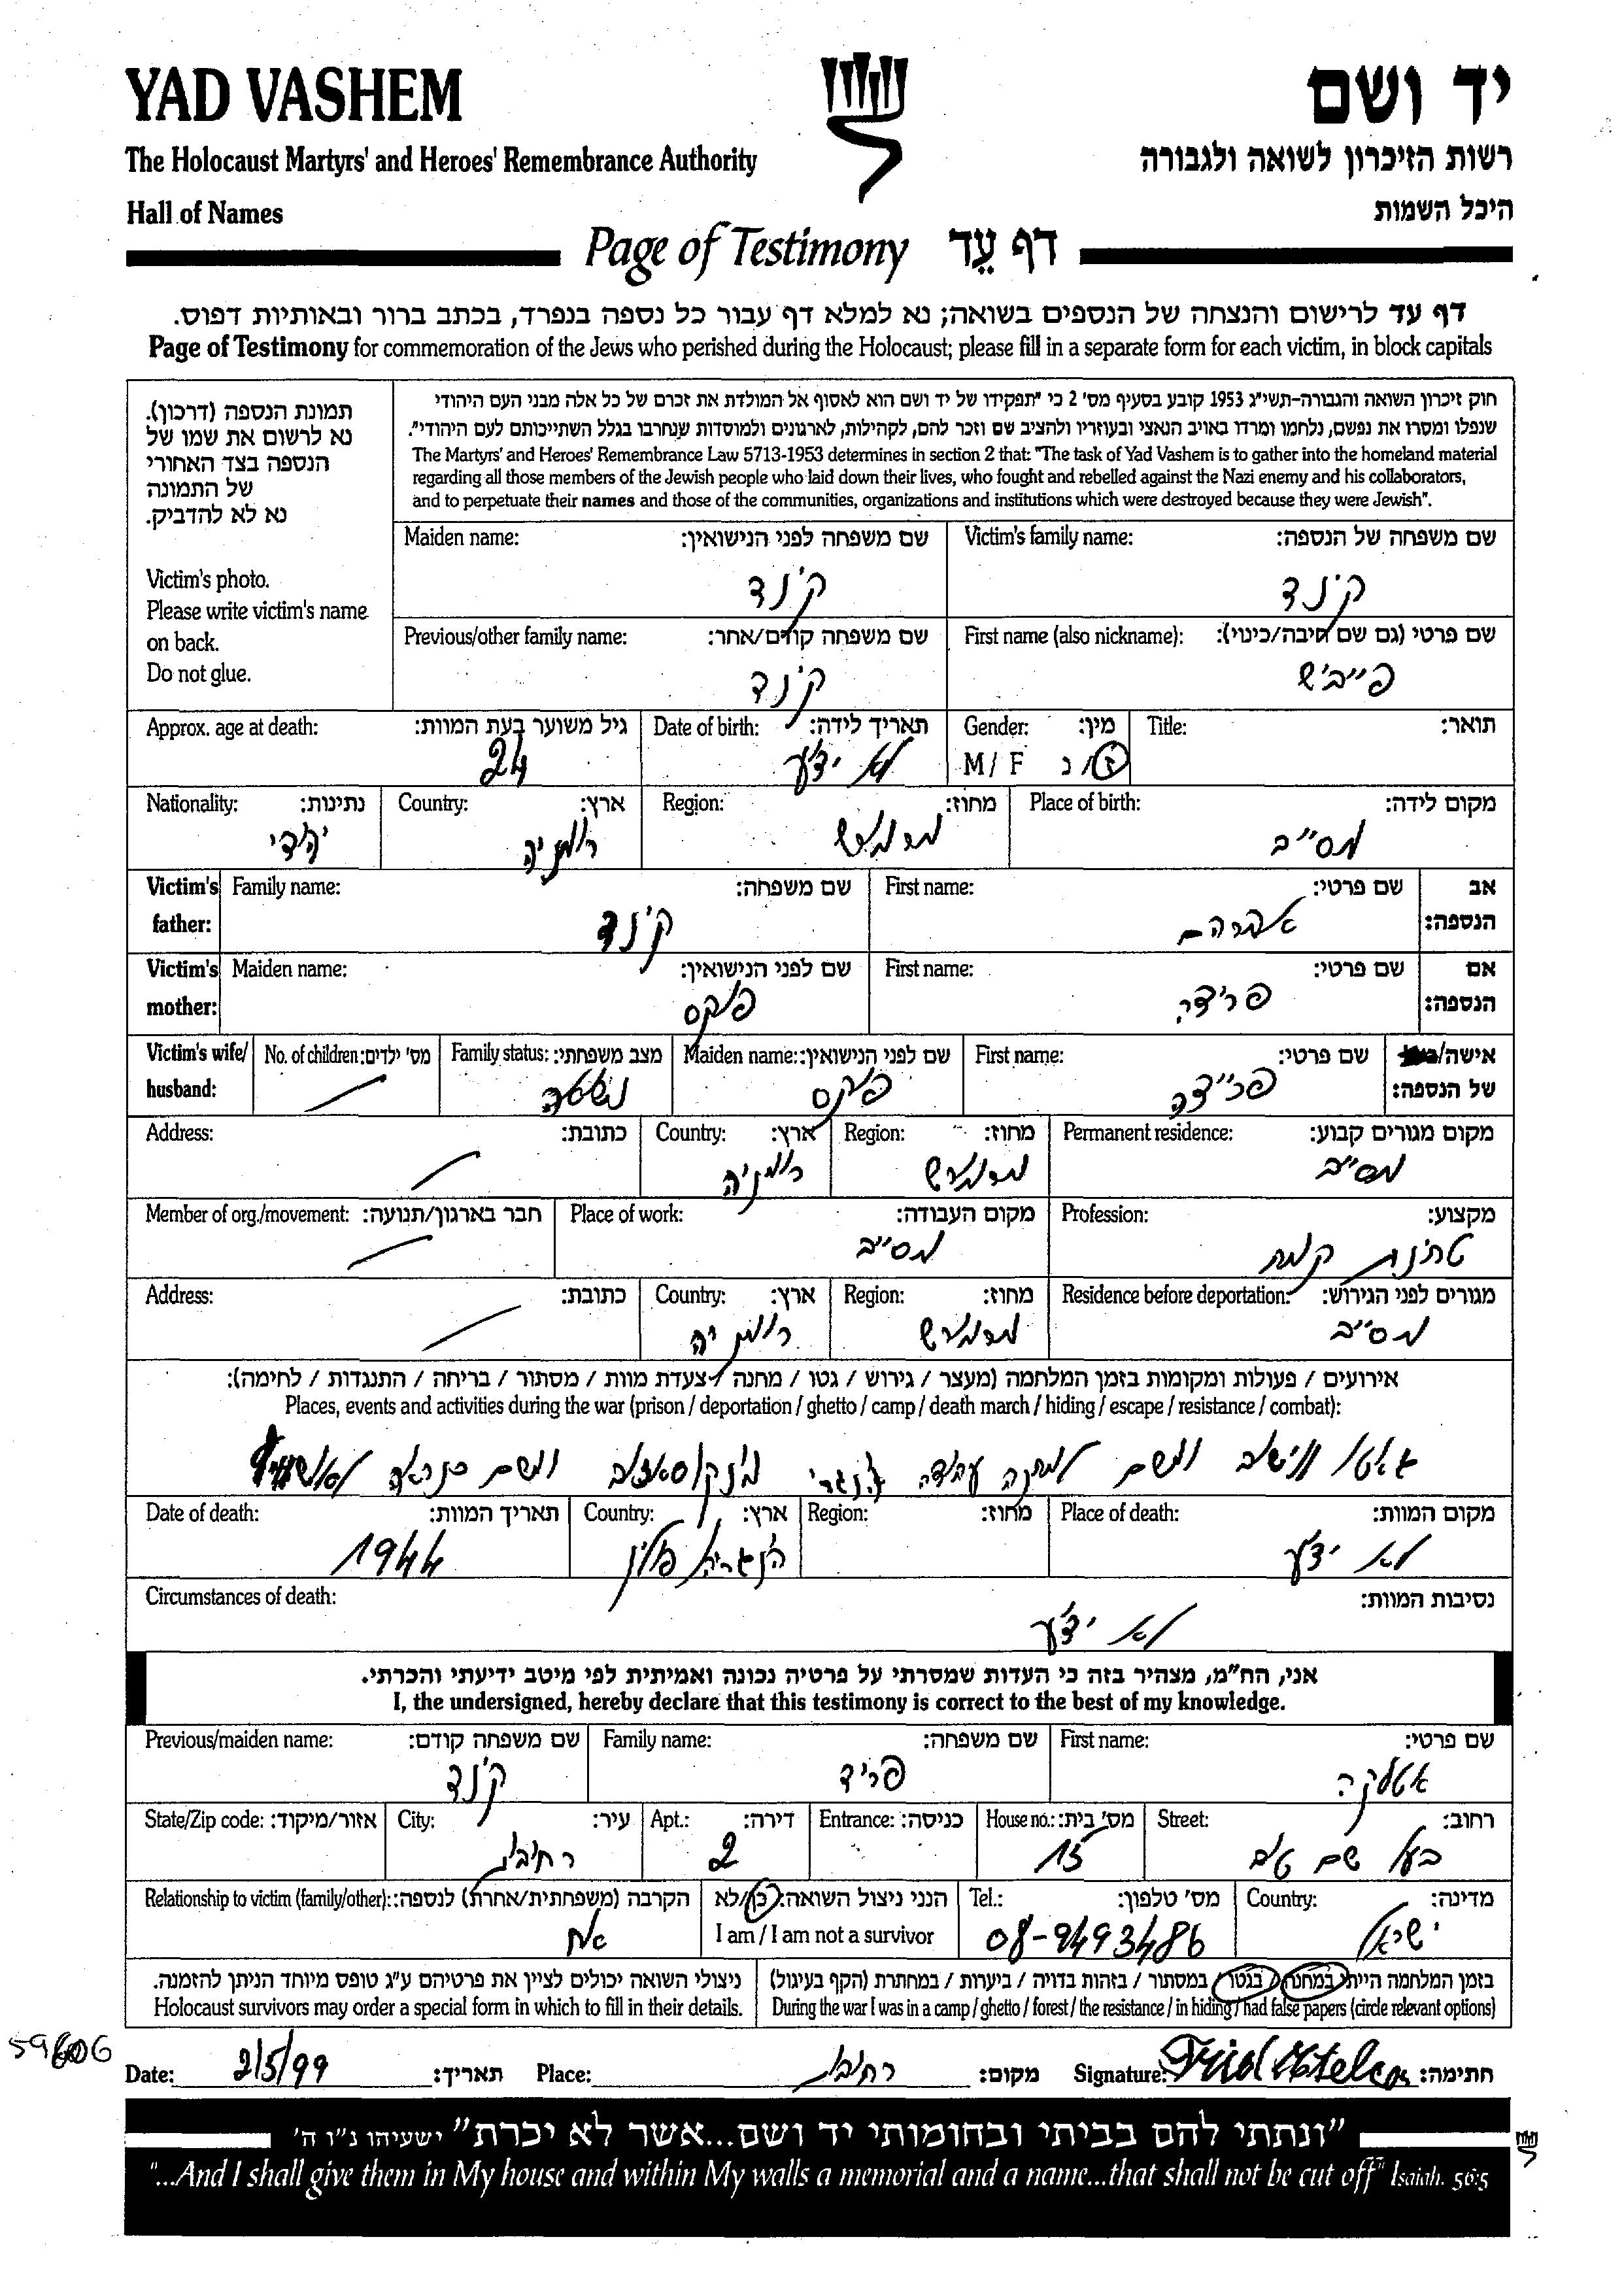 YAD VASHEM
יד ושם
The Holocaust Martyrs' and Heroes' Remembrance Authority
רשות הזיכרון לשואה ולגבורה
Hall of Names
היכל השמות
Page of Testimony דף עֵד
דף עד לרישום והנצחה של הנספים בשואה; נא למלא דף עבור כל נספה בנפרד, בכתב ברור ובאותיות דפוס.
Page of Testimony for commemoration of the Jews who perished during the Holocaust; please fill in a separate form for each victim, in block capitals
תמונת הנספה (דרכון).
נא לרשום את שמו של
הנספה בצד האחורי
של התמונה
נא לא להדביק.
Victim's photo.
Please write victim's name
on back.
Do not glue.
חוק זיכרון השואה והגבורה-תשי"ג 1953 קובע בסעיף מס' 2 כי "תפקידו של יד ושם הוא לאסוף אל המולדת את זכרם של כל אלה מבני העם היהודי
שנפלו ומסרו את נפשם, נלחמו ומרדו באויב הנאצי ובעוזריו ולהציב שם וזכר להם, לקהילות, לארגונים ולמוסדות שנחרבו בגלל השתייכותם לעם היהודי".
The Martyrs' and Heroes' Remembrance Law 5713-1953 determines in section 2 that: "The task of Yad Vashem is to gather into the homeland material
regarding all those members of the Jewish people who laid down their lives, who fought and rebelled against the Nazi enemy and his collaborators,
and to perpetuate their names and those of the communities, organizations and institutions which were destroyed because they were Jewish".
Victim's family name: שם משפחה של הנספה:
קינד
Maiden name: שם משפחה לפני הנישואין:
קינד
First name (also nickname): שם פרטי (גם שם חיבה/כינוי):
פייביש
Previous/other family name: שם משפחה קודם/אחר:
קינד
Title: תואר:
Gender: מין:
M/ F ז/נ
Date of birth: תאריך לידה:
לא ידוע
Approx. age at death: גיל משוער בעת המוות:
24
Place of birth: מקום לידה:
מסי"ב
Region: מחוז:
מרמורש
Country: ארץ:
רומניה
Nationality: נתינות:
יהודי
Victim's father: אב הנספה:
First name: שם פרטי:
אברהם
Family name: שם משפחה:
קינד
Victim's mother: אם הנספה:
First name: שם פרטי:
פרידה
Maiden name: שם לפני הנישואין:
פוקס
Victim's wife/ husband: אישה/ של הנספה:
First name: שם פרטי:
פריידה
Maiden name: שם לפני הנישואין:
פוקס
Family status: מצב משפחתי:
נשוי
No. of children: מס' ילדים:
Permanent residence: מקום מגורים קבוע:
מסי"ב
Region: מחוז:
מרמורש
Country: ארץ:
רומניה
Address: כתובת:
Profession: מקצוע:
טחנת קמח
Place of work: מקום העבודה:
מסי"ב
Member of org./movement: חבר בארגון/תנועה:
Residence before deportation: מגורים לפני הגירוש:
מסי"ב
Region: מחוז:
מרמורש
Country: ארץ:
רומניה
Address: כתובת:
אירועים / פעולות ומקומות בזמן המלחמה (מעצר / גירוש / גטו / מחנה / צעדת מוות / מסתור / בריחה / התנגדות / לחימה):
Places, events and activities during the war (prison / deportation / ghetto / camp / death march / hiding / escape / resistance / combat):
ומשם למחנה עבודה ומשם כנראה
Place of death: מקום המוות:
לא ידוע
Region: מחוז:
Country: ארץ:
הונגריה/פולין
Date of death: תאריך המוות:
1944
Circumstances of death: נסיבות המוות:
לא ידוע
אני, הח"מ, מצהיר בזה כי העדות שמסרתי על פרטיה נכונה ואמיתית לפי מיטב ידיעתי והכרתי.
I, the undersigned, hereby declare that this testimony is correct to the best of my knowledge.
First name: שם פרטי:
אטלקה
Family name: שם משפחה:
פריד
Previous/maiden name: שם משפחה קודם:
קינד
Street: רחוב:
בעל שם טוב
House no.: מס' בית:
15
Entrance: כניסה:
Apt.: דירה:
2
City: עיר:
רחובות
State/Zip code: אזור/מיקוד:
Country: מדינה:
ישראל
Tel.: מס' טלפון:
08-9493486
הנני ניצול השואה: כן/לא
I am / I am not a survivor
Relationship to victim (family/other): הקרבה (משפחתית/אחרת) לנספה:
אח
בזמן המלחמה הייתי במחנה / בגטו / במסתור / בזהות בדויה / ביערות / במחתרת (הקף בעיגול)
During the war I was in a camp / ghetto / forest / the resistance / in hiding / had false papers (circle relevant options)
ניצולי השואה יכולים לציין את פרטיהם ע"ג טופס מיוחד הניתן להזמנה.
Holocaust survivors may order a special form in which to fill in their details.
59606
Date: 2/5/99 תאריך: Place: רחובות מקום: Signature: Frid Etelca חתימה:
"ונתתי להם בביתי ובחומותי יד ושם...אשר לא יכרת" ישעיהו נ"ו ה'
"...And I shall give them in My house and within My walls a memorial and a name...that shall not be cut off" Isaiah. 56:5